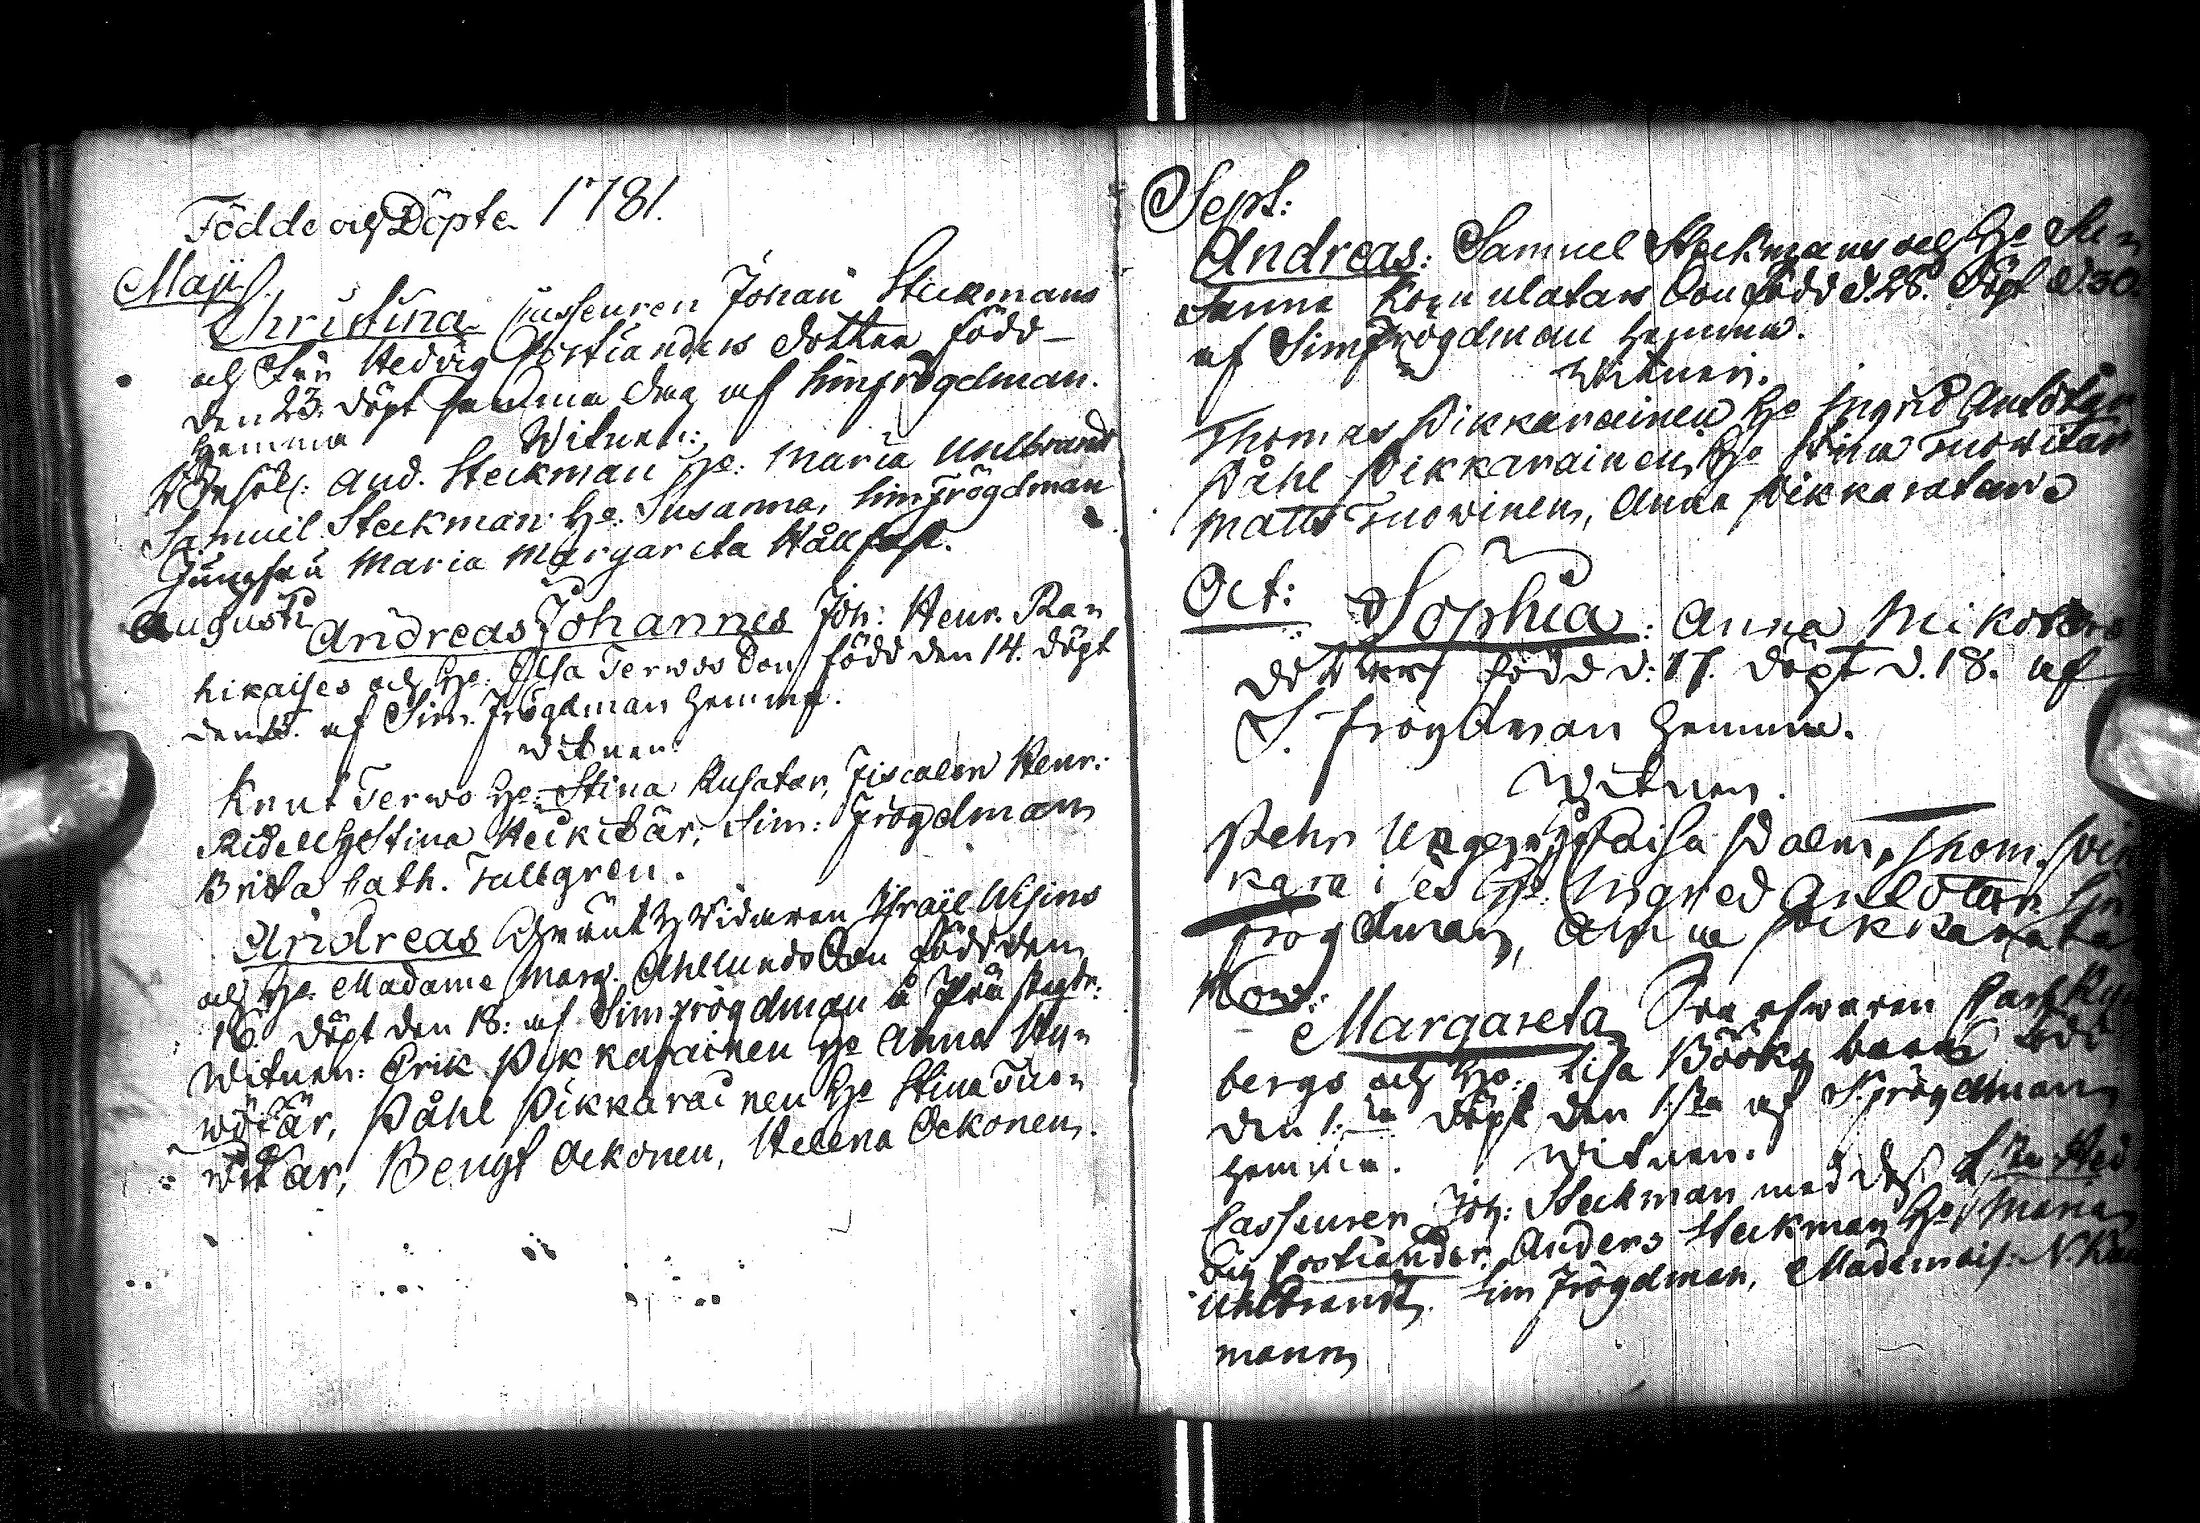 Födde och Döpte 1781.
Maji.
Christina Casseuren Johan Steckmans
och Fru Hedvig Costianders dotter född
den 23. döpt samma dag af Sim Frögdman
hemma Witnen:
And. Steckman H: Maria Uhlbrandt
Samuel Steckman H: Susanna, Sim Frögdman
Jungfru Maria Margareta Hållfast.
Augusti
Andreas Johannes Joh: Henr. Ra-
hikaises och H: Elsa Terwos Son född den 14. döpt
den af Sim. Frögdman hemma.
Witnen
Knut Terwo H: Stina Rusatar, Fiscalen Henr:
Ridell H Stina Heickitär, Sim: Frögdman
Brita Cath. Tallgren.
Andreas Israel
och H: Madame Marg. Ahllunds Son född den
16. döpt den 18: af Sim Frögdman i
Witnen: Erik Pikkarainen H: Anna Hy-
wötär, Påhl Pikkarainen H: Stina Tuo-
witar, Bengt Ockonen, Helena Ockonen.
Sept:
Andreas: Samuel Steckmans och H: Su-
sanna Son född d. 28. döpt d 30.
af Sim Frögdman hemma.
Witnen.
Thomas Pikkarainen H: Ingrid
Påhl Pikkarainen, H: Stina Tuowitar
Matts Tuowinen, Anna Pikkaratar
Oct:
Sophia: Anna
dotter född d: 17. döpt d. 18. af
S. Frögdman hemma.
Witnen.
Pehr H: Caisa Palm, Thom. Pik
karaises H: Ingred Sim
Frögdman, Anna Pikkarata
Nov:
Margareta
bergs och H: Lisa Böök barn född
den 1:sta döpt den 1:sta af S. Frögdman
hemma. Witnen.
Casseuren Joh: Steckman med dess Fru Hed
vig Costiander, Anders Steckman H: Maria
Uhlbrandt, Sim Frögdman, Mademois: N.
mann